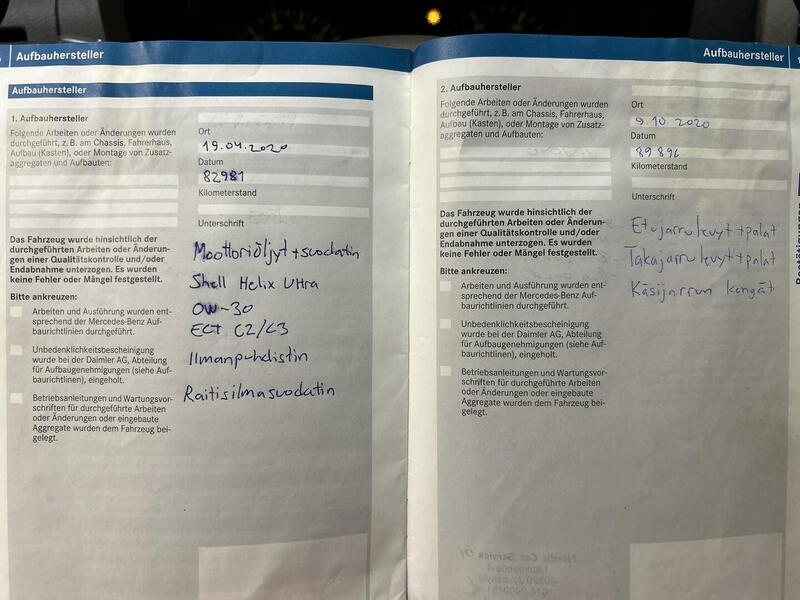 Aufbauhersteller
Aufbauhersteller
1. Aufbauhersteller
Folgende Arbeiten oder Änderungen wurden
durchgeführt, z.B. am Chassis, Fahrerhaus,
Aufbau (Kasten), oder Montage von Zusatz-
aggregaten und Aufbauten:
Ort
19.04.2020
Datum
82981
Kilometerstand
Unterschrift
Das Fahrzeug wurde hinsichtlich der
durchgeführten Arbeiten oder Änderun-
gen einer Qualitätskontrolle und/oder
Endabnahme unterzogen. Es wurden
keine Fehler oder Mängel festgestellt.
Bitte ankreuzen:
Arbeiten und Ausführung wurden ent-
sprechend der Mercedes-Benz Auf-
baurichtlinien durchgeführt.
Unbedenklichkeitsbescheinigung
wurde bei der Daimler AG, Abteilung
für Aufbaugenehmigungen (siehe Auf-
baurichtlinien), eingeholt.
Betriebsanleitungen und Wartungsvor-
schriften für durchgeführte Arbeiten
oder Änderungen oder eingebaute
Aggregate wurden dem Fahrzeug bei-
gelegt.
Moottoriöljyt+suodatin
Shell Helix Ultra
0W-30
ECT C2/C3
Ilmanpuhdistin
Raitisilmasuodatin
Aufbauhersteller
2. Aufbauhersteller
Folgende Arbeiten oder Änderungen wurden
durchgeführt, z.B. am Chassis, Fahrerhaus,
Aufbau (Kasten), oder Montage von Zusatz-
aggregaten und Aufbauten:
Ort
9.10.2020
Datum
89896
Kilometerstand
Unterschrift
Das Fahrzeug wurde hinsichtlich der
durchgeführten Arbeiten oder Änderun-
gen einer Qualitätskontrolle und/oder
Endabnahme unterzogen. Es wurden
keine Fehler oder Mängel festgestellt.
Bitte ankreuzen:
Arbeiten und Ausführung wurden ent-
sprechend der Mercedes-Benz Auf-
baurichtlinien durchgeführt.
Unbedenklichkeitsbescheinigung
wurde bei der Daimler AG, Abteilung
für Aufbaugenehmigungen (siehe Auf-
baurichtlinien), eingeholt.
Betriebsanleitungen und Wartungsvor-
schriften für durchgeführte Arbeiten
oder Änderungen oder eingebaute
Aggregate wurden dem Fahrzeug bei-
gelegt.
Etujarrulevyt+palat
Takajarrulevyt+palat
Käsijarrun kengät
Nordic Car Service Oy